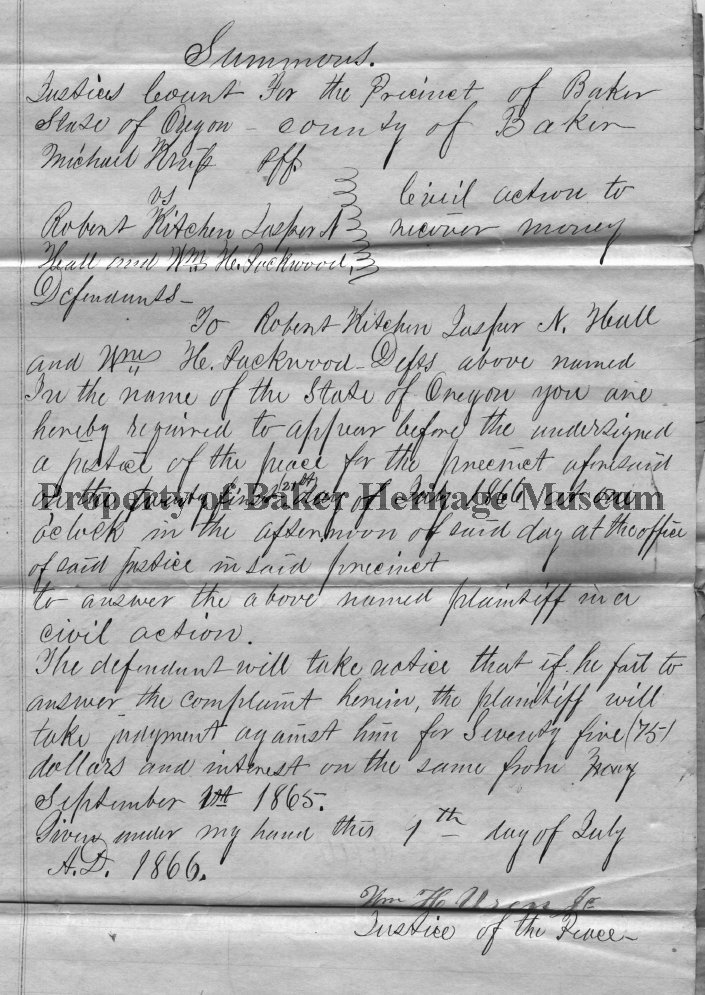 Summons.
Justices Court For the Precinct of Baker
State of Oregon - County of Baker
Michael Plff
vs
Robert Kitchen Jasper N
Hall and Wm H. Packwood,
Defendants -
Civil action to
recover money
To Robert Kitchen Jasper N. Hall
and Wm H. Packwood - Defts above named
In the name of the State of Oregon you are
hereby required to appear before the undersigned
a justice of the peace for the precinct aforesaid
on the 21st day of July 1866 at
Property of Baker Heritage Museum
o'clock in the afternoon of said day at the office
of said justice in said precinct
to answer the above named plaintiff in a
civil action.
The defendant will take notice that if he fail to
answer the complaint herein, the plaintiff will
take judgment against him for Seventy five (75)
dollars and interest on the same from
September 1st 1865.
Given under my hand this 9th day of July
A.D. 1866.
Wm H.
Justice of the Peace -